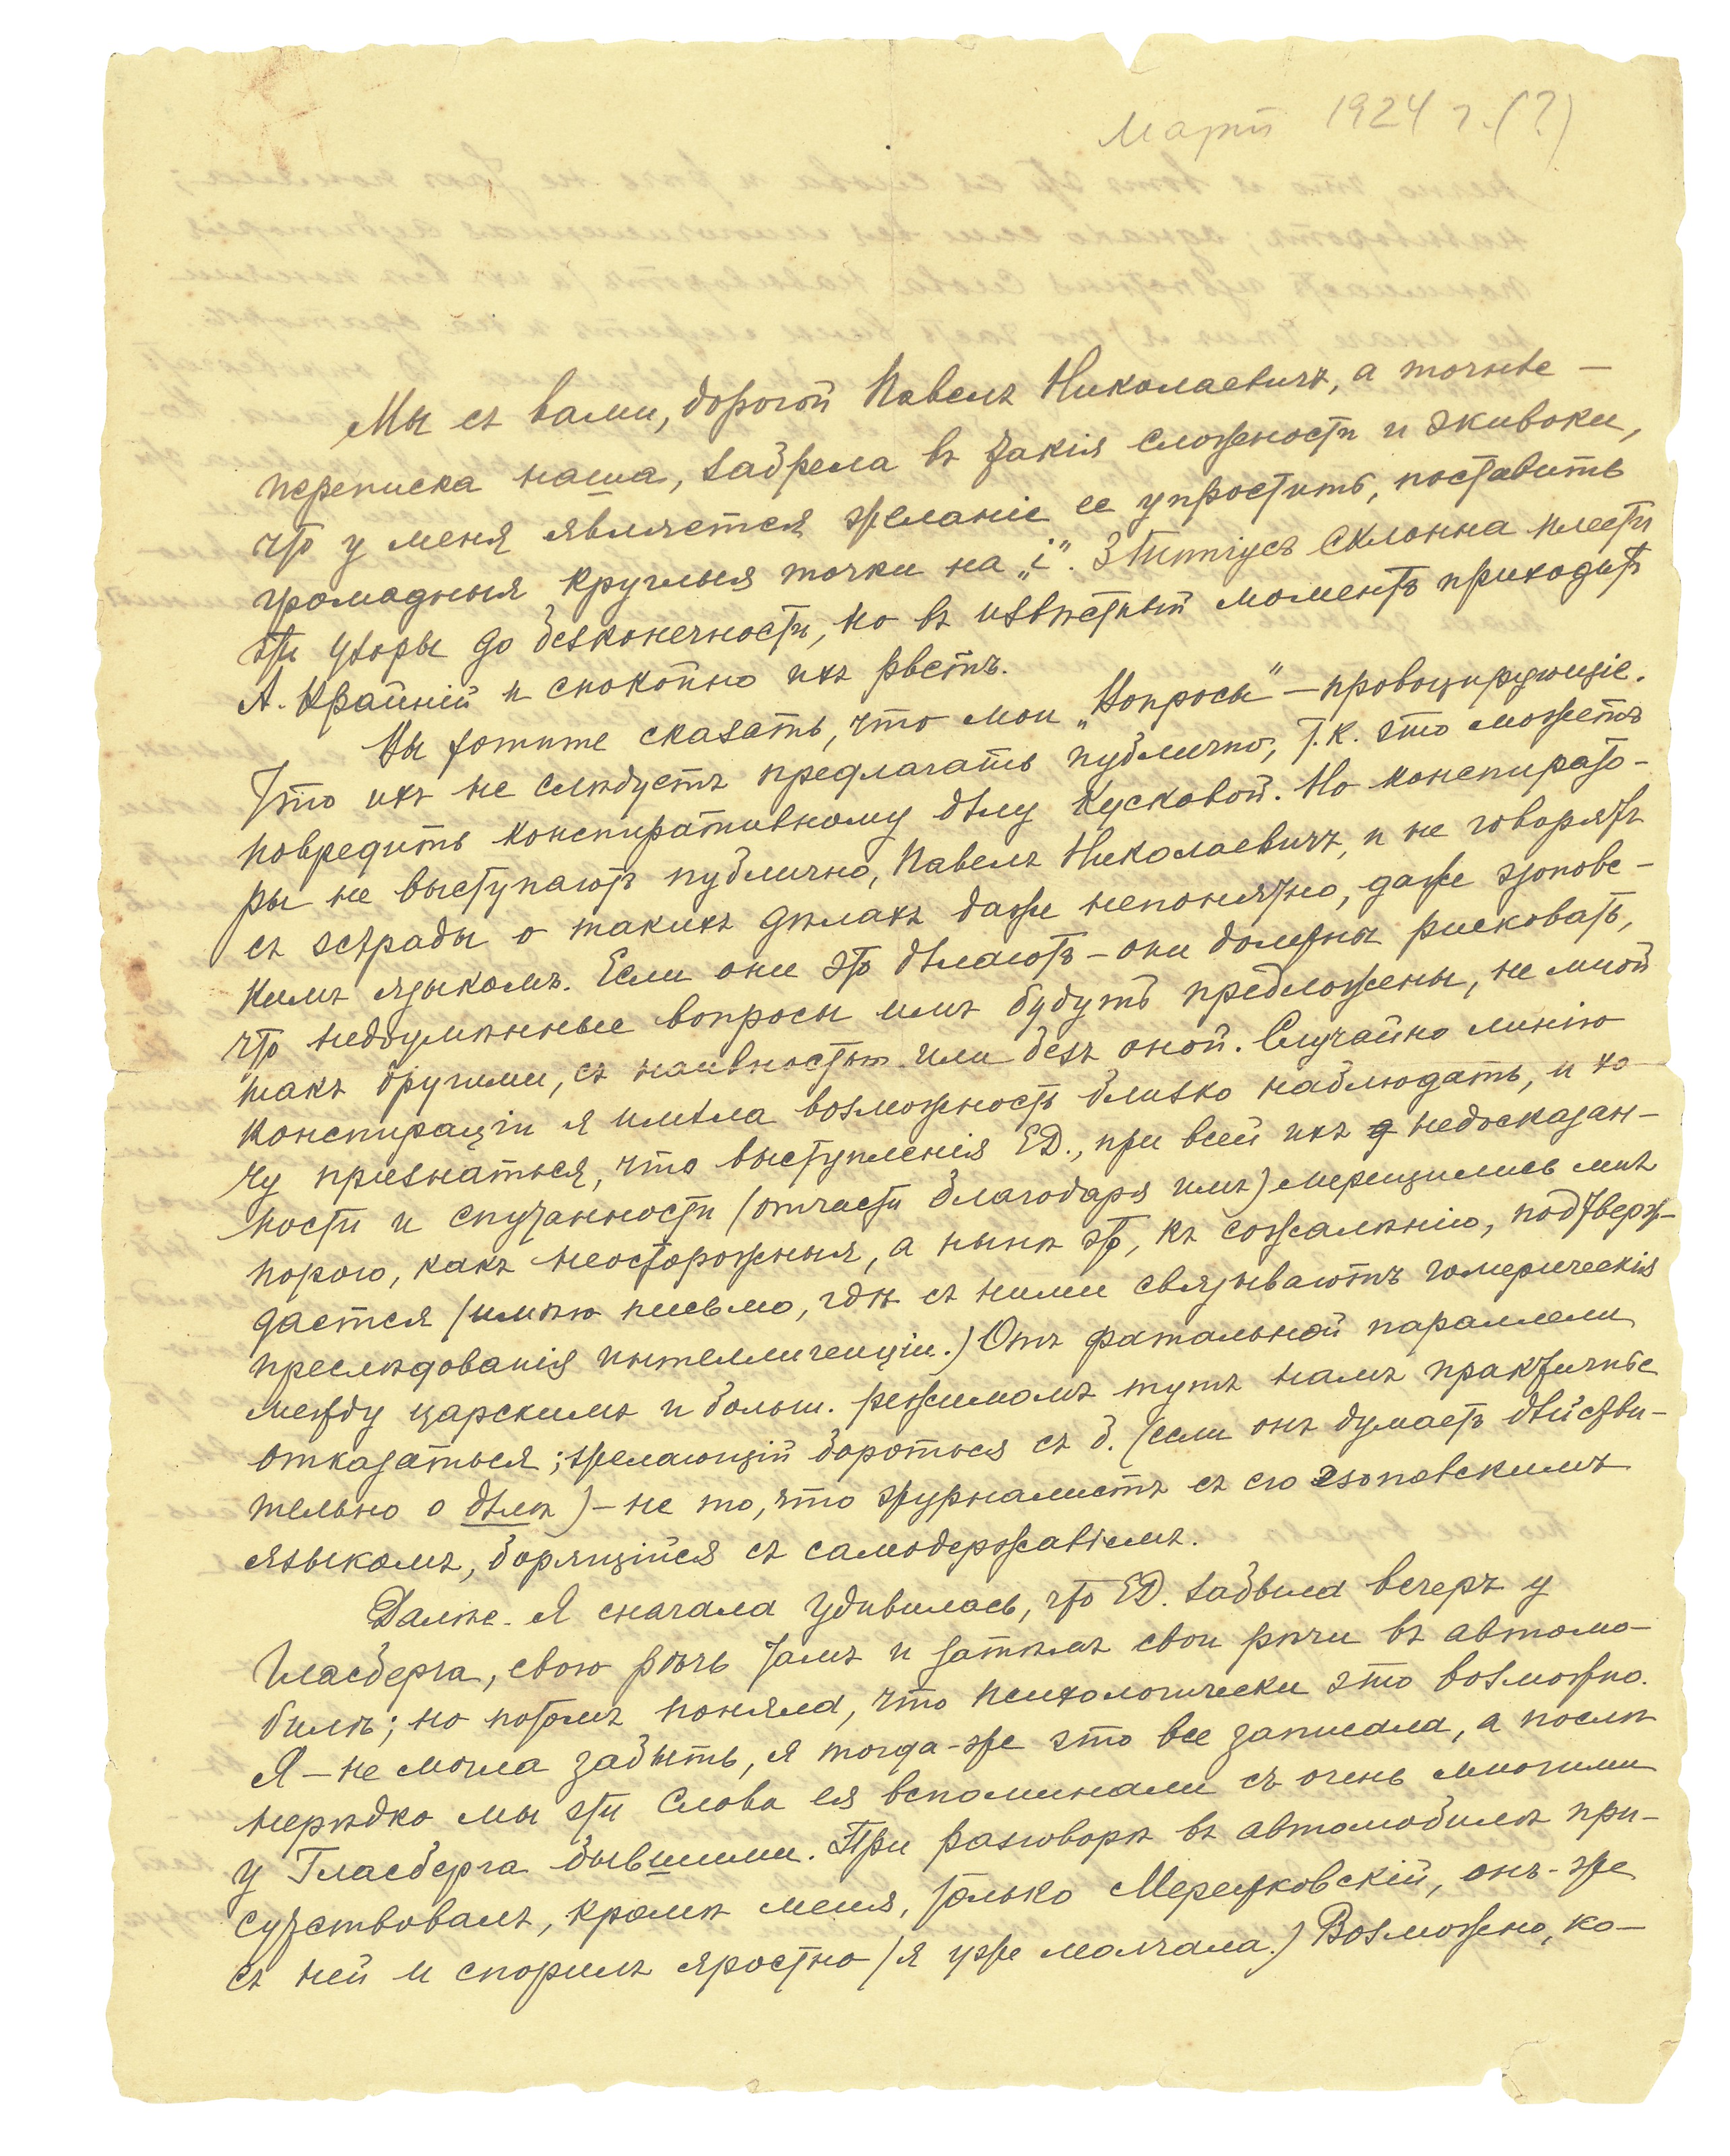 Мартъ 1924 г. (?)
Мы съ вами, дорогой Павелъ Николаевичъ, а точнѣе —
переписка наша, забрела въ такія сложности и экивоки,
что у меня является желаніе ее упростить, поставить
громадныя круглыя точки на „i“. З Гиппіусъ склонна плести
эти узоры до безконечности, но въ извѣстный моментъ приходитъ
А. Крайній и спокойно ихъ рветъ.
Вы хотите сказать, что мои „Вопросы“ — провоцирующіе.
Что ихъ не слѣдуетъ предлагать публично, т.к. это можетъ
повредить конспиративному дѣлу Кусковой. Но конспирато-
ры не выступаютъ публично, Павелъ Николаевичъ, и не говорятъ
съ эстрады о такихъ дѣлахъ даже непонятно, даже эзопов-
кимъ языкомъ. Если они это дѣлаютъ — они должны рисковать,
что недоумѣнные вопросы имъ будутъ предложены, не мной
такъ другими, съ наивностью или безъ оной. Случайно линію
конспираціи я имѣла возможность близко наблюдать, и хо-
чу признаться, что выступленія ЕД., при всей ихъ недосказан-
ности и спутанности (отчасти благодаря имъ) мерещились мнѣ
порою, какъ неосторожныя, а нынѣ это, къ сожалѣнію, подтверж-
дается (имѣю письмо, гдѣ съ ними связываютъ гомерическія
преслѣдованія интеллигенціи.) Отъ фатальной параллели
между царскимъ и больш. режимомъ тутъ намъ практичнѣе
отказаться; желающій бороться съ б. (если онъ думаетъ дѣйстви-
тельно о дѣлѣ) — не то, что журналистъ съ его эзоповскимъ
языкомъ, борящійся съ самодержавіемъ.
Далѣе. Я сначала удивилась, что ЕД. забыла вечеръ у
Гласберга, свою рѣчь тамъ и затѣмъ свои рѣчи въ автомо-
билѣ; но потомъ поняла, что психологически это возможно.
Я — не могла забыть, я тогда-же это все записала, а послѣ
нерѣдко мы эти слова ея вспоминали съ очень многими
у Гласберга бывшими. При разговорѣ въ автомобилѣ при-
сутствовалъ, кромѣ меня, только Мережковскій, онъ-же
съ ней и спорилъ яростно (я уже молчала.) Возможно, ко-